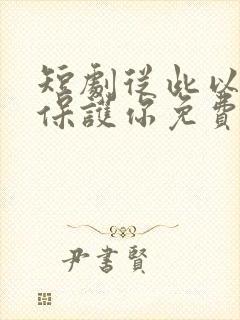 短劇從此以
保護你免費
尹書賢